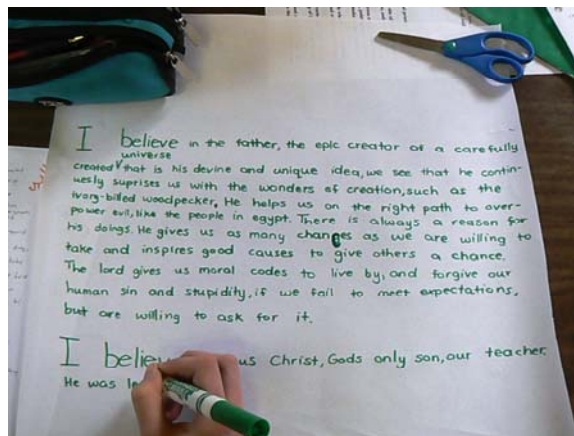 I believe in the father, the epic creator of a carefully
universe
created that is his devine and unique idea, we see that he contin-
uesly suprises us with the wonders of creation, such as the
Ivory-billed woodpecker. He helps us on the right path to over-
power evil, like the people in egypt. There is always a reason for
his doings. He gives us as many chances as we are willing to
take and inspires good causes to give others a chance.
The lord gives us moral codes to live by, and forgive our
human sin and stupidity, if we fail to meet expectations,
but are willing to ask for it.
I believ us Christ, Gods only son, our teacher.
He was le